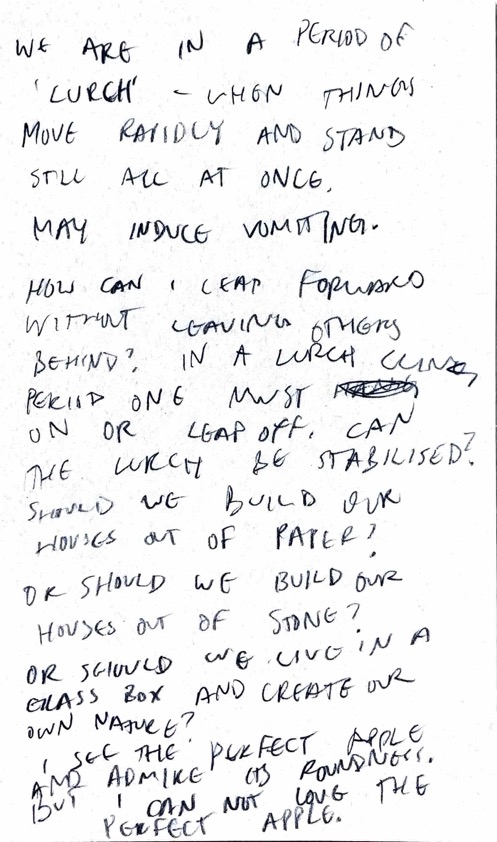 WE ARE IN A PERIOD OF
'LURCH' - WHEN THINGS
MOVE RAPIDLY AND STAND
STILL ALL AT ONCE.
MAY INDUCE VOMITTING.
HOW CAN I LEAP FORWARD
WITHOUT LEAVING OTHERS
BEHIND? IN A LURCH CLING
PERIOD ONE MUST
ON OR LEAP OFF. CAN
THE LURCH BE STABILISED?
SHOULD WE BUILD OUR
HOUSES OUT OF PAPER?
OR SHOULD WE BUILD OUR
HOUSES OUT OF STONE?
OR SHOULD WE LIVE IN A
GLASS BOX AND CREATE OUR
OWN NATURE?
I SEE THE PERFECT APPLE
AND ADMIRE ITS ROUNDNESS.
BUT I CAN NOT LOVE THE
PERFECT APPLE.